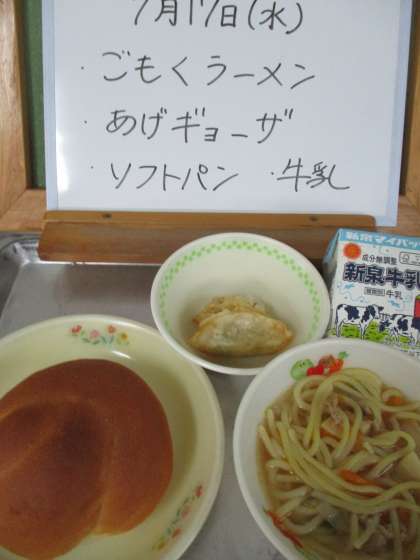 7月17日(水)
・ごもくラーメン
・あげギョーザ
・ソフトパン ・牛乳
新泉マイパック
成分無調整
新泉牛乳
種類別 牛乳